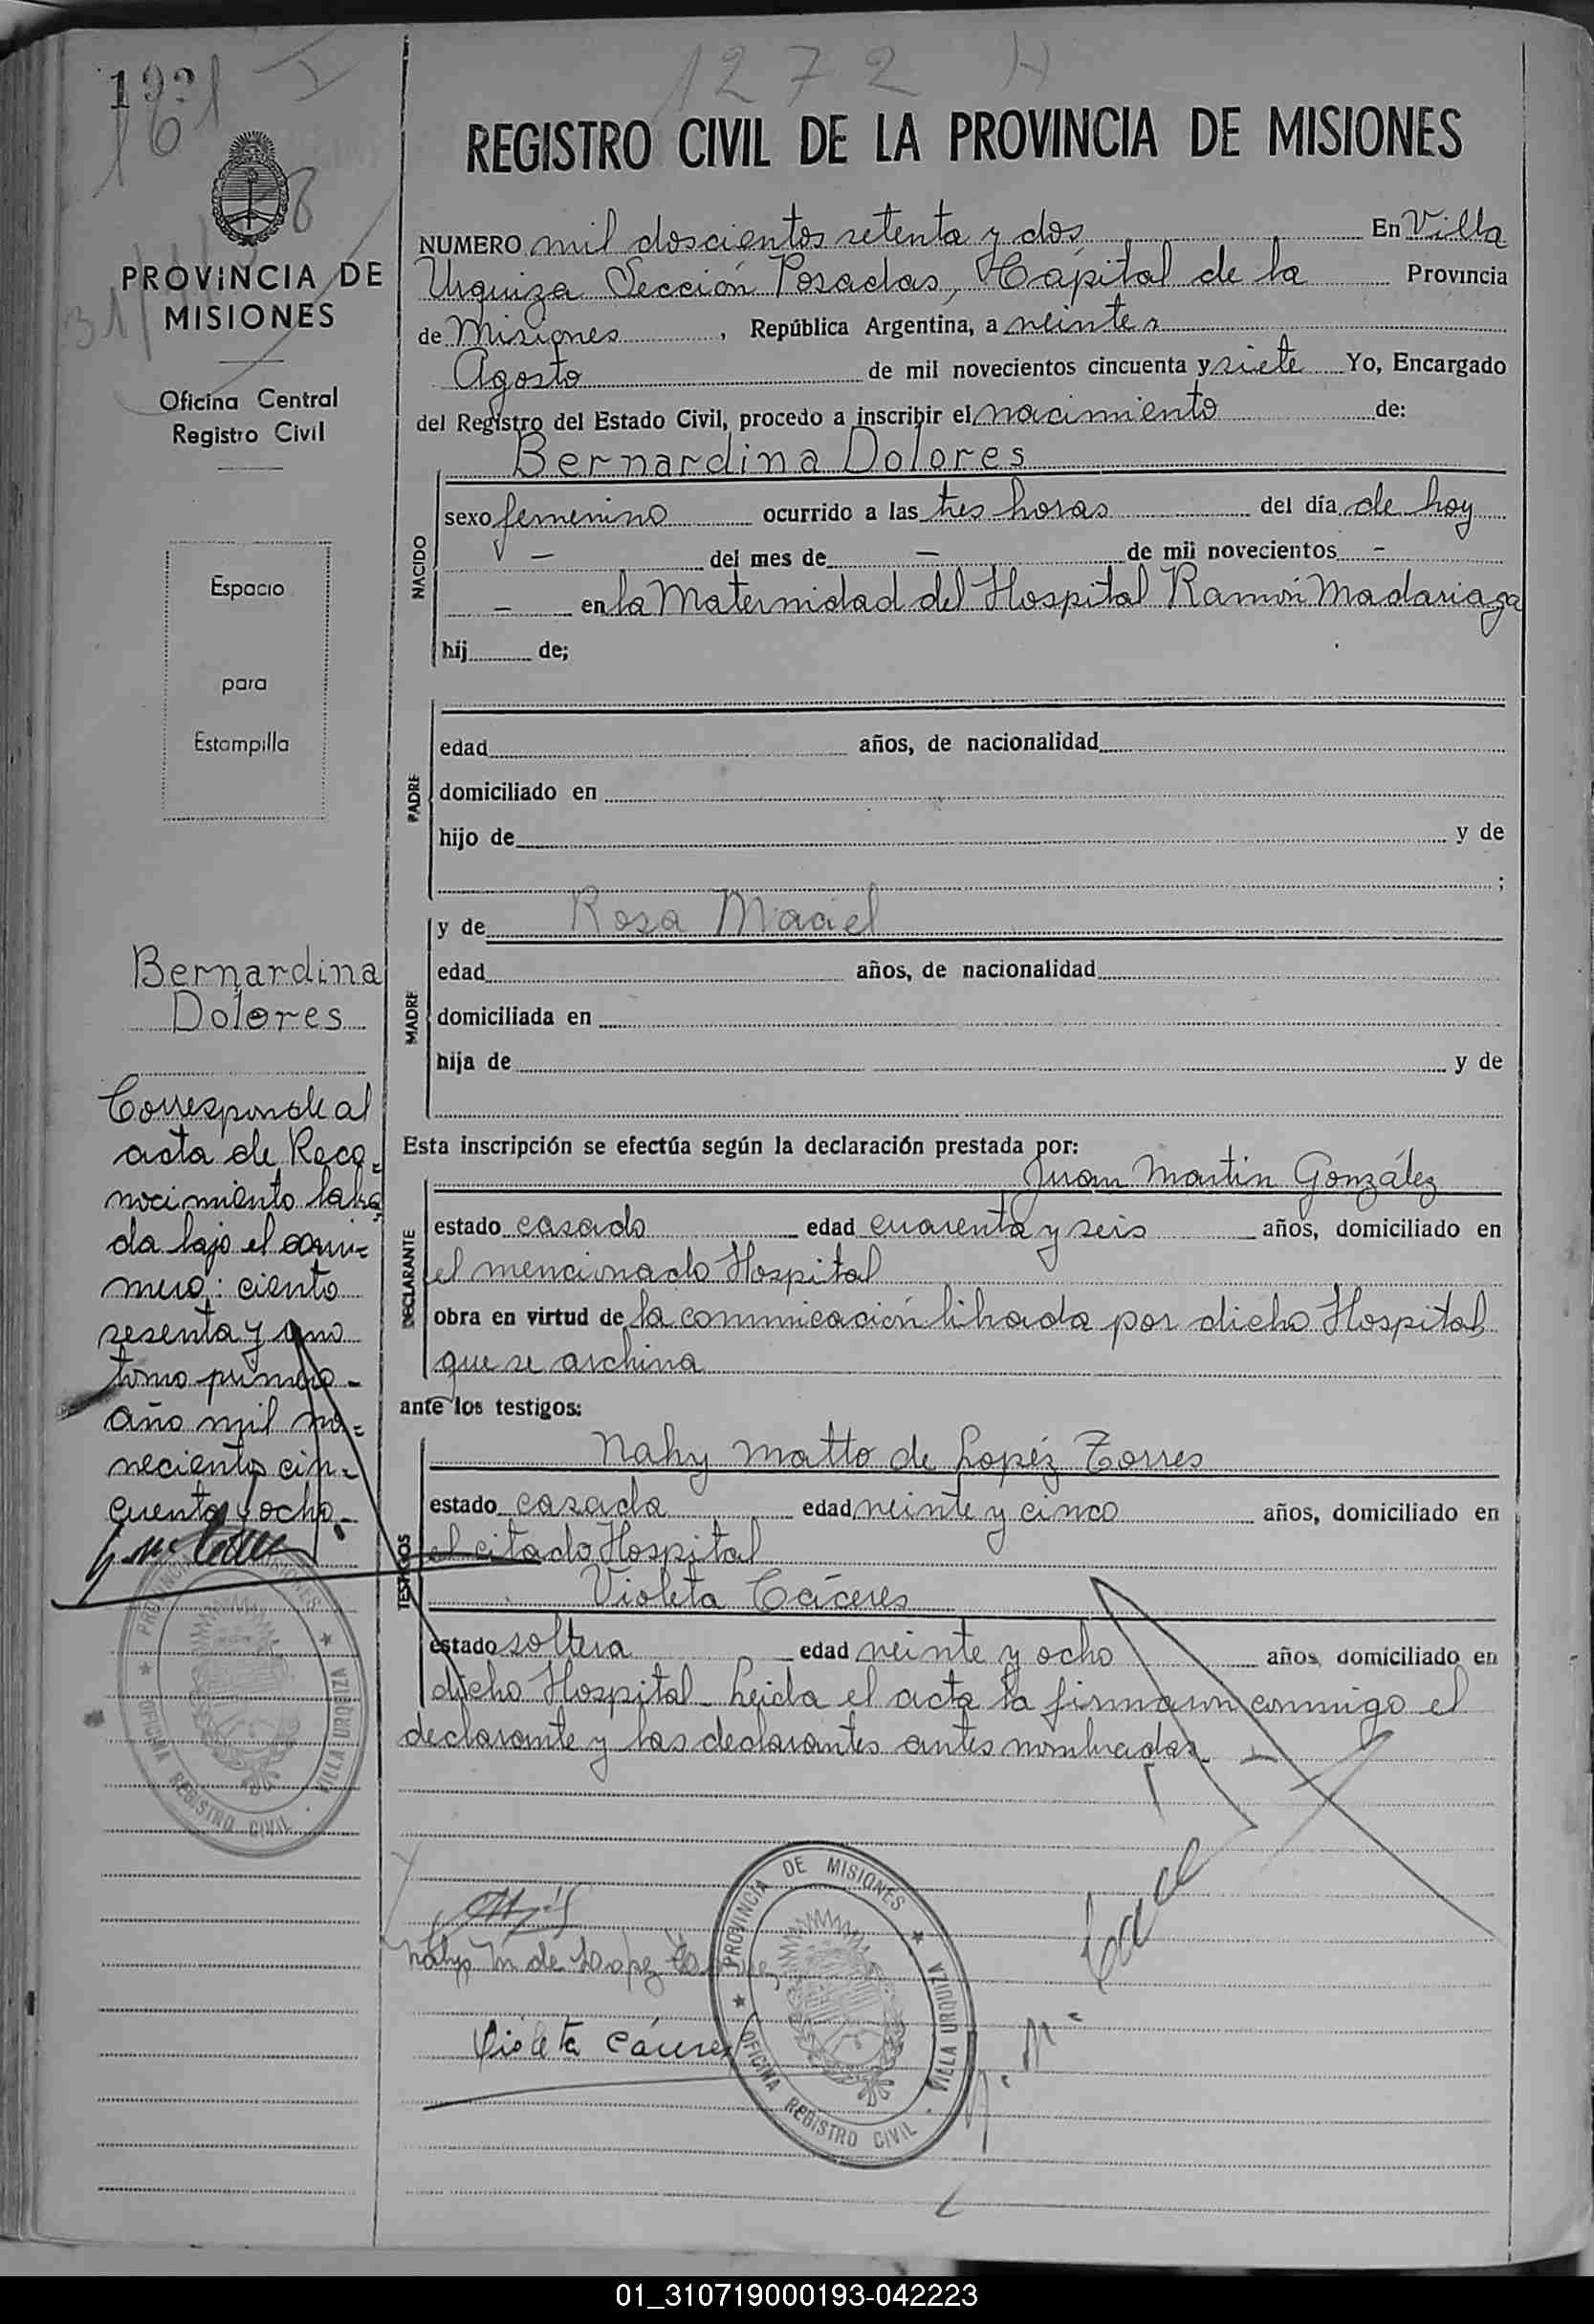 1272 H
161 I
REGISTRO CIVIL DE LA PROVINCIA DE MISIONES
PROVINCIA DE
MISIONES
Oficina Central
Registro Civil
Espacio
para
Estampilla
Bernardina
Dolores
Corresponde al
acta de Reco-
nocimiento labra
da bajo el
mero: ciento
sesenta y uno
tomo primero-
año mil no-
veciento cin-
cuenta y ocho-
PROVINCIA DE MISIONES ★ VILLA URQUIZA · OFICINA REGISTRO CIVIL ★
NUMERO mil doscientos setenta y dos En Villa
Urquiza Sección Posadas, Cápital de la Provincia
de Misiones, República Argentina, a veinte
Agosto de mil novecientos cincuenta y siete Yo, Encargado
del Registro del Estado Civil, procedo a inscribir el nacimiento de:
Bernardina Dolores
NACIDO
sexo femenino ocurrido a las tres horas del día de hoy
— del mes de — de mil novecientos —
— en la Maternidad del Hospital Ramón Madariaga
hij de;
PADRE
edad años, de nacionalidad
domiciliado en
hijo de y de
;
MADRE
y de Rosa Maciel
edad años, de nacionalidad
domiciliada en
hija de y de
Esta inscripción se efectúa según la declaración prestada por:
Juan Martin González
DECLARANTE
estado casado edad cuarenta y seis años, domiciliado en
el mencionado Hospital
obra en virtud de la comunicación librada por dicho Hospital
que se archiva
ante los testigos:
Nahy Matto de Lopéz Torres
TESTIGOS
estado casada edad veinte y cinco años, domiciliado en
el citado Hospital
Violeta Cáceres
estado soltera edad veinte y ocho años, domiciliado en
dicho Hospital- Leida el acta la firmaron conmigo el
declarante y las declarantes antes nombradas.
Nahy M de Lopez
Violeta Cáceres
PROVINCIA DE MISIONES ★ VILLA URQUIZA · OFICINA REGISTRO CIVIL ★
01_310719000193-042223